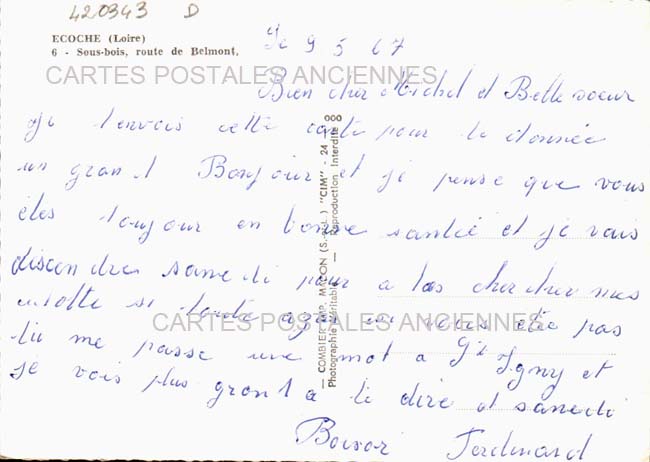 420343 D
ECOCHE (Loire)
6 - Sous-bois, route de Belmont.
CARTES POSTALES ANCIENNES
le 9 5 67
Bien cher Michel et Belle soeur
je tenvois cette carte pour te donnée
un grant Bonjour et je pense que vous
êtes toujour en bonne santée et je vais
discendre samedi pour a las chercher mes
si toute vous etie pas
CARTES POSTALES ANCIENNES
tu me passe une mot a St Igny et
je vois plus grant a te dire et samedi
Ferdinand
— COMBIER IMP. MACON (S.-&-L.) "CIM" - 24 -
Photographie Véritable — Reproduction Interdite